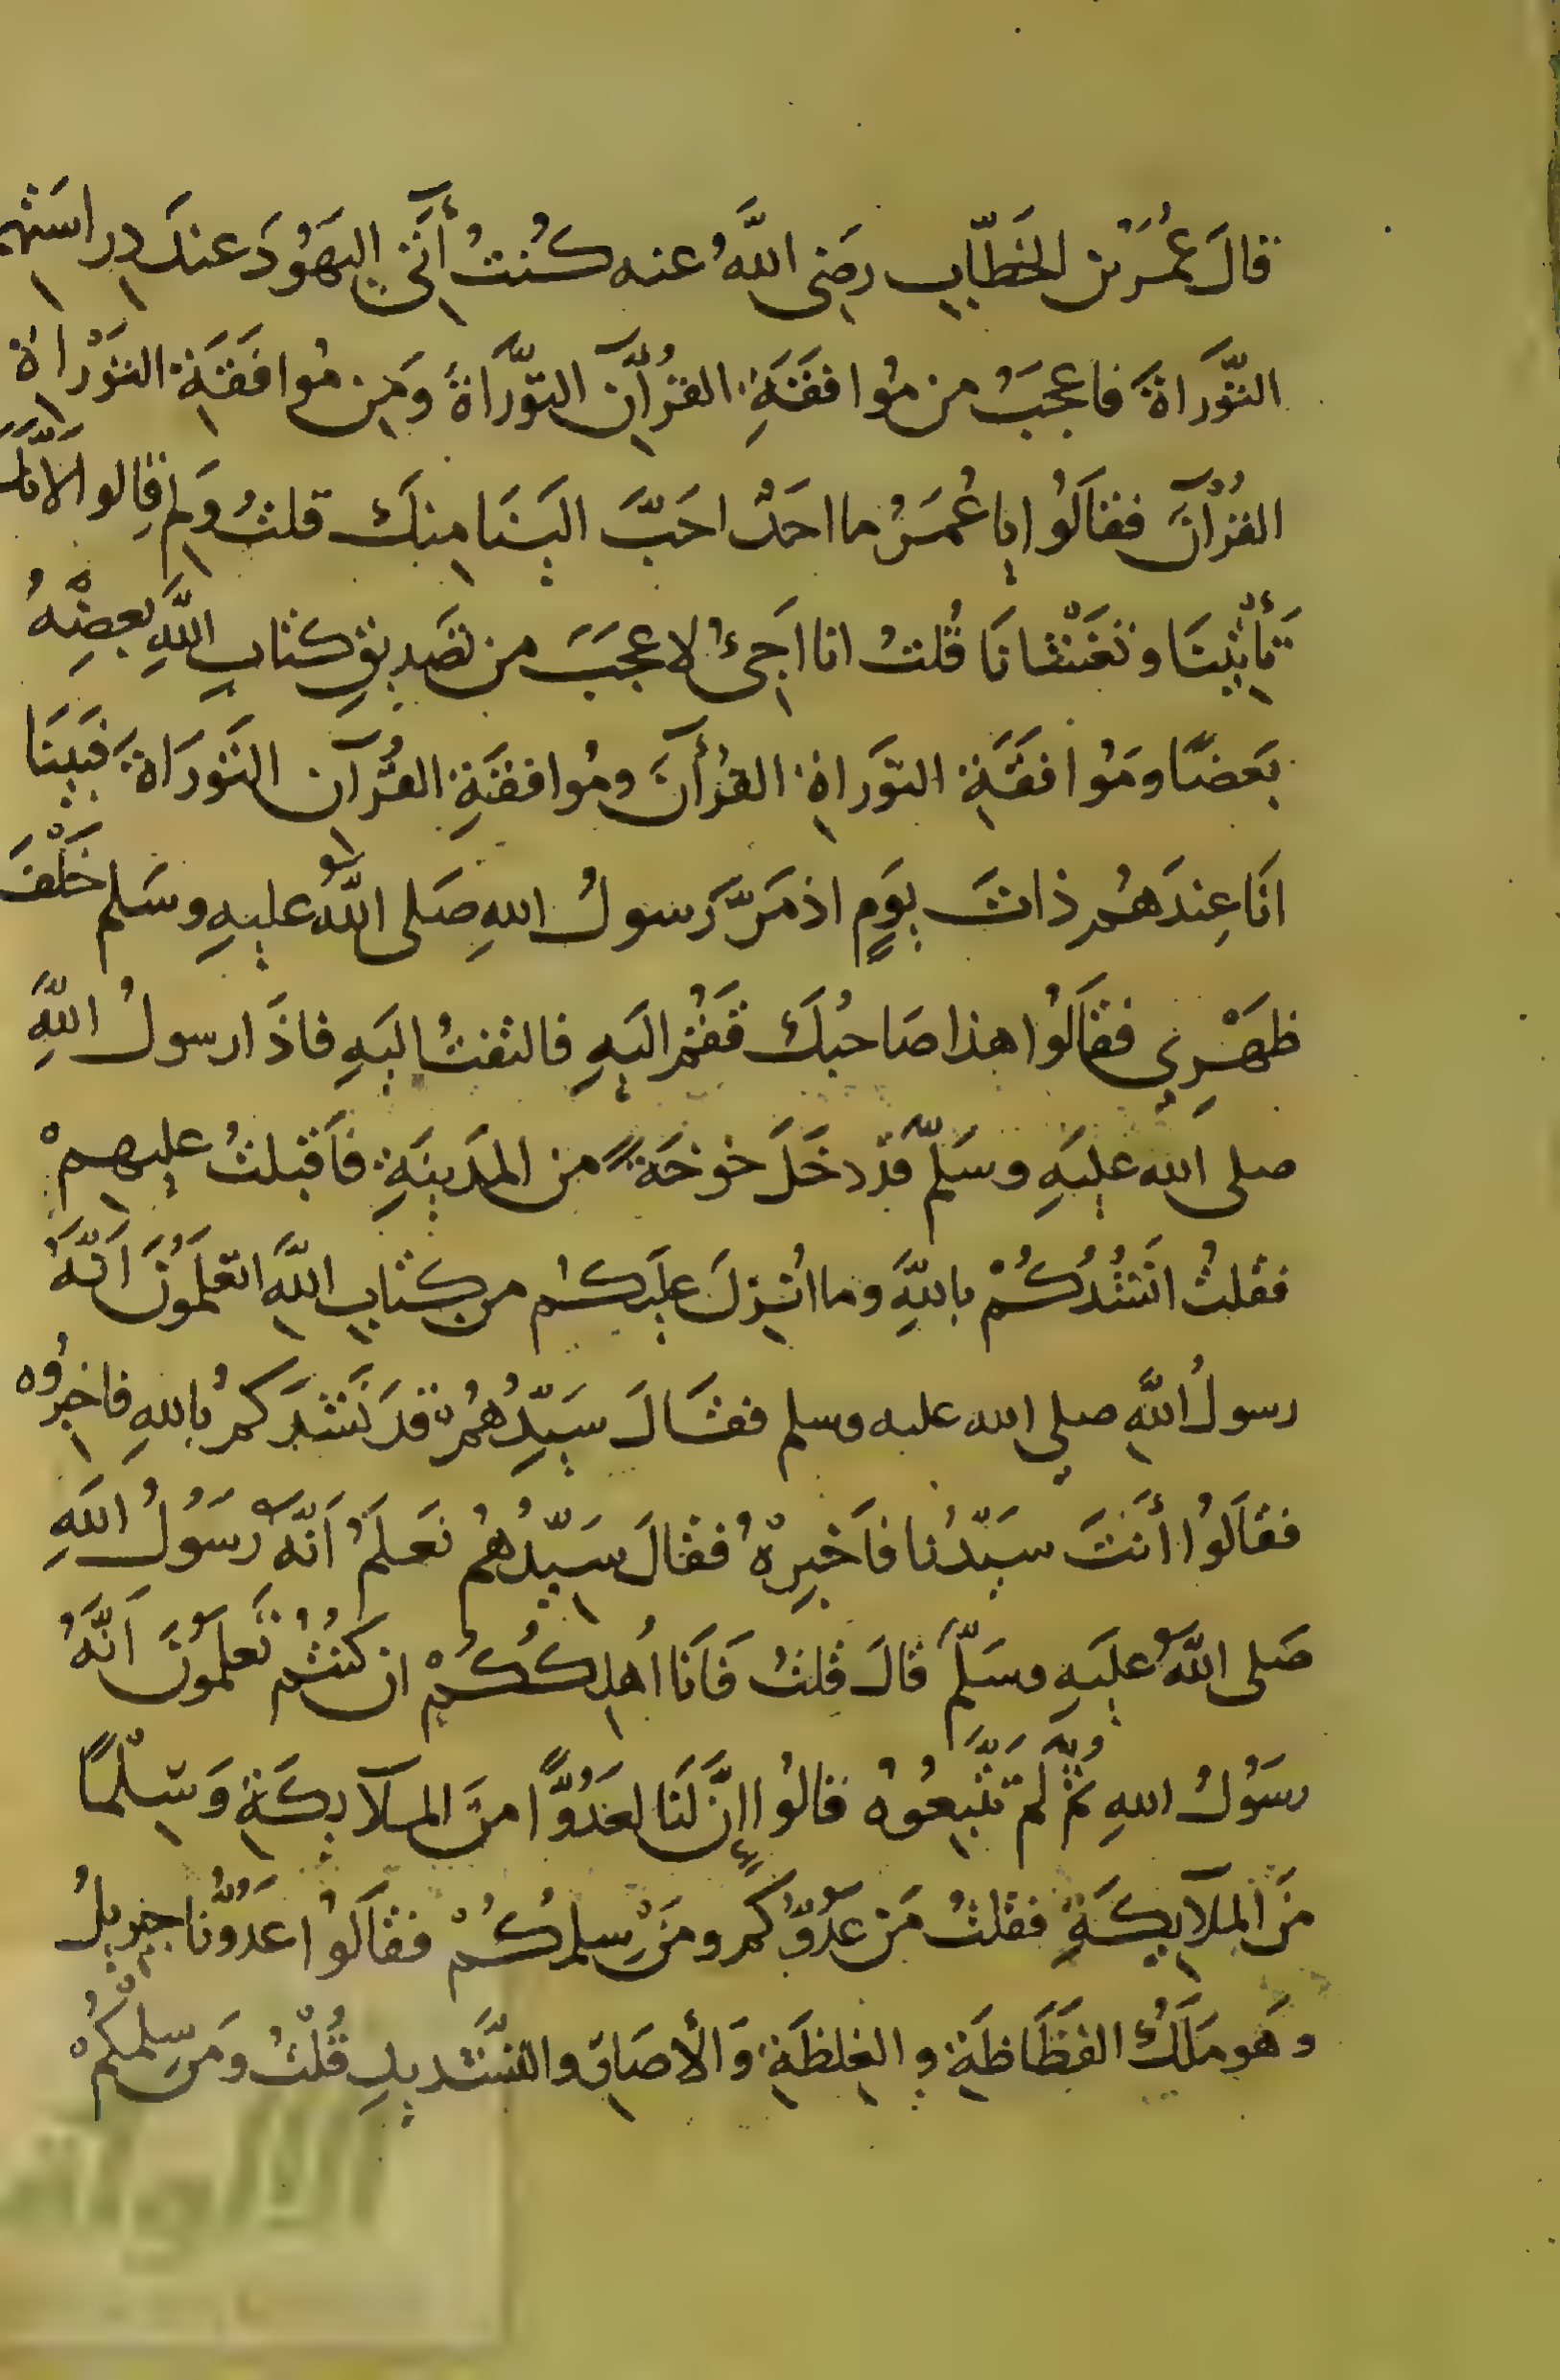 قالَ عُمَرُ بْن الخَطّابِ رضِى اللَّهُ عنه كُنتُ أَتِى اليَهُودَ عندَ دِراسَتهِم
التَّوَراةَ فاعجَبُ من مُوافقَةِ القُرْآنِ التَّوَراةَ وَمِن مُوافَقَةِ التَوْراةِ
القُرْآنَ فقالَوُا يا عُمَرُ ما احَدٌ احَبَّ اليَنَا مِنكَ قلتُ وَلِمَ قالوا لاَنَّكَ
تَأْتِيْنَا وتَغَنْشَانَا قُلتُ انا اَجِئُ لاعجَبَ من تصَدِيقِ كتابِ اللَّهِ بعضِهُ
بَعضًا ومَوُافَقَةِ التَوَراةِ القرُأنَ ومُوافقَةِ القُرْآنِ التَوَراةَ فَبَينَا
انَا عِندَهُم ذاتَ يَومٍ اذ مَرَّ رَسولُ اللهِ صَلى اللَّهُ عليهِ وسَلم خَلْفَ
ظهَرِي فقالَوُا هذا صَاحبُكَ فَقُم اليَهِ فالتفتُ اليَهِ فاذَا رسولُ اللَّهِ
صلى الله عليَهِ وسَلَّم قد دخَلَ خوخَةً من المدَينَةِ فاَقبلتُ عليهِمْ
فقلتُ انَشُدُكُمْ باللَّهِ وما انُزِلَ عليَكُم من كتابِ اللَّهِ اتَعلَمُونَ اَنَّهُ
رسولُ اللَّهِ صلي الله عليه وسلم فقَالَ سَيِّدُهُمْ قد نَشَدَكمُ باللهِ فاخبِرُوه
فقالَوُا أنَتَ سَيِّدُنا فاَخبِرهُ فقالَ سَيّدُهُم نعَلَمُ اَنَّهُ رَسُولُ اللهِ
صَلى اللَّهُ عليَهِ وسَلَّم قالَ قلتُ فَاَنَا اُهلِكُكُمْ ان كنتُم تعلمَوُنَ اَنَّهُ
رسَوُلُ اللهِ ثمَّ لَم تَتَّبِعُوُهُ قالُوا إِنَّ لَنَا لعَدُوًّا منَ الملآيِكَةِ وَسِلْمًا
مَن الملآيِكَةِ فقلتُ مَن عدُوُّكُم ومَنْ سِلمُكُمْ فقالَوُا عَدُوُّنا جبِريلُ
وهَو مَلَكُ الفظَاظَةِ والغِلظَةِ وَالأصَارِ والتشَّديدِ قُلْتُ وَمَن سِلمُكُمْ